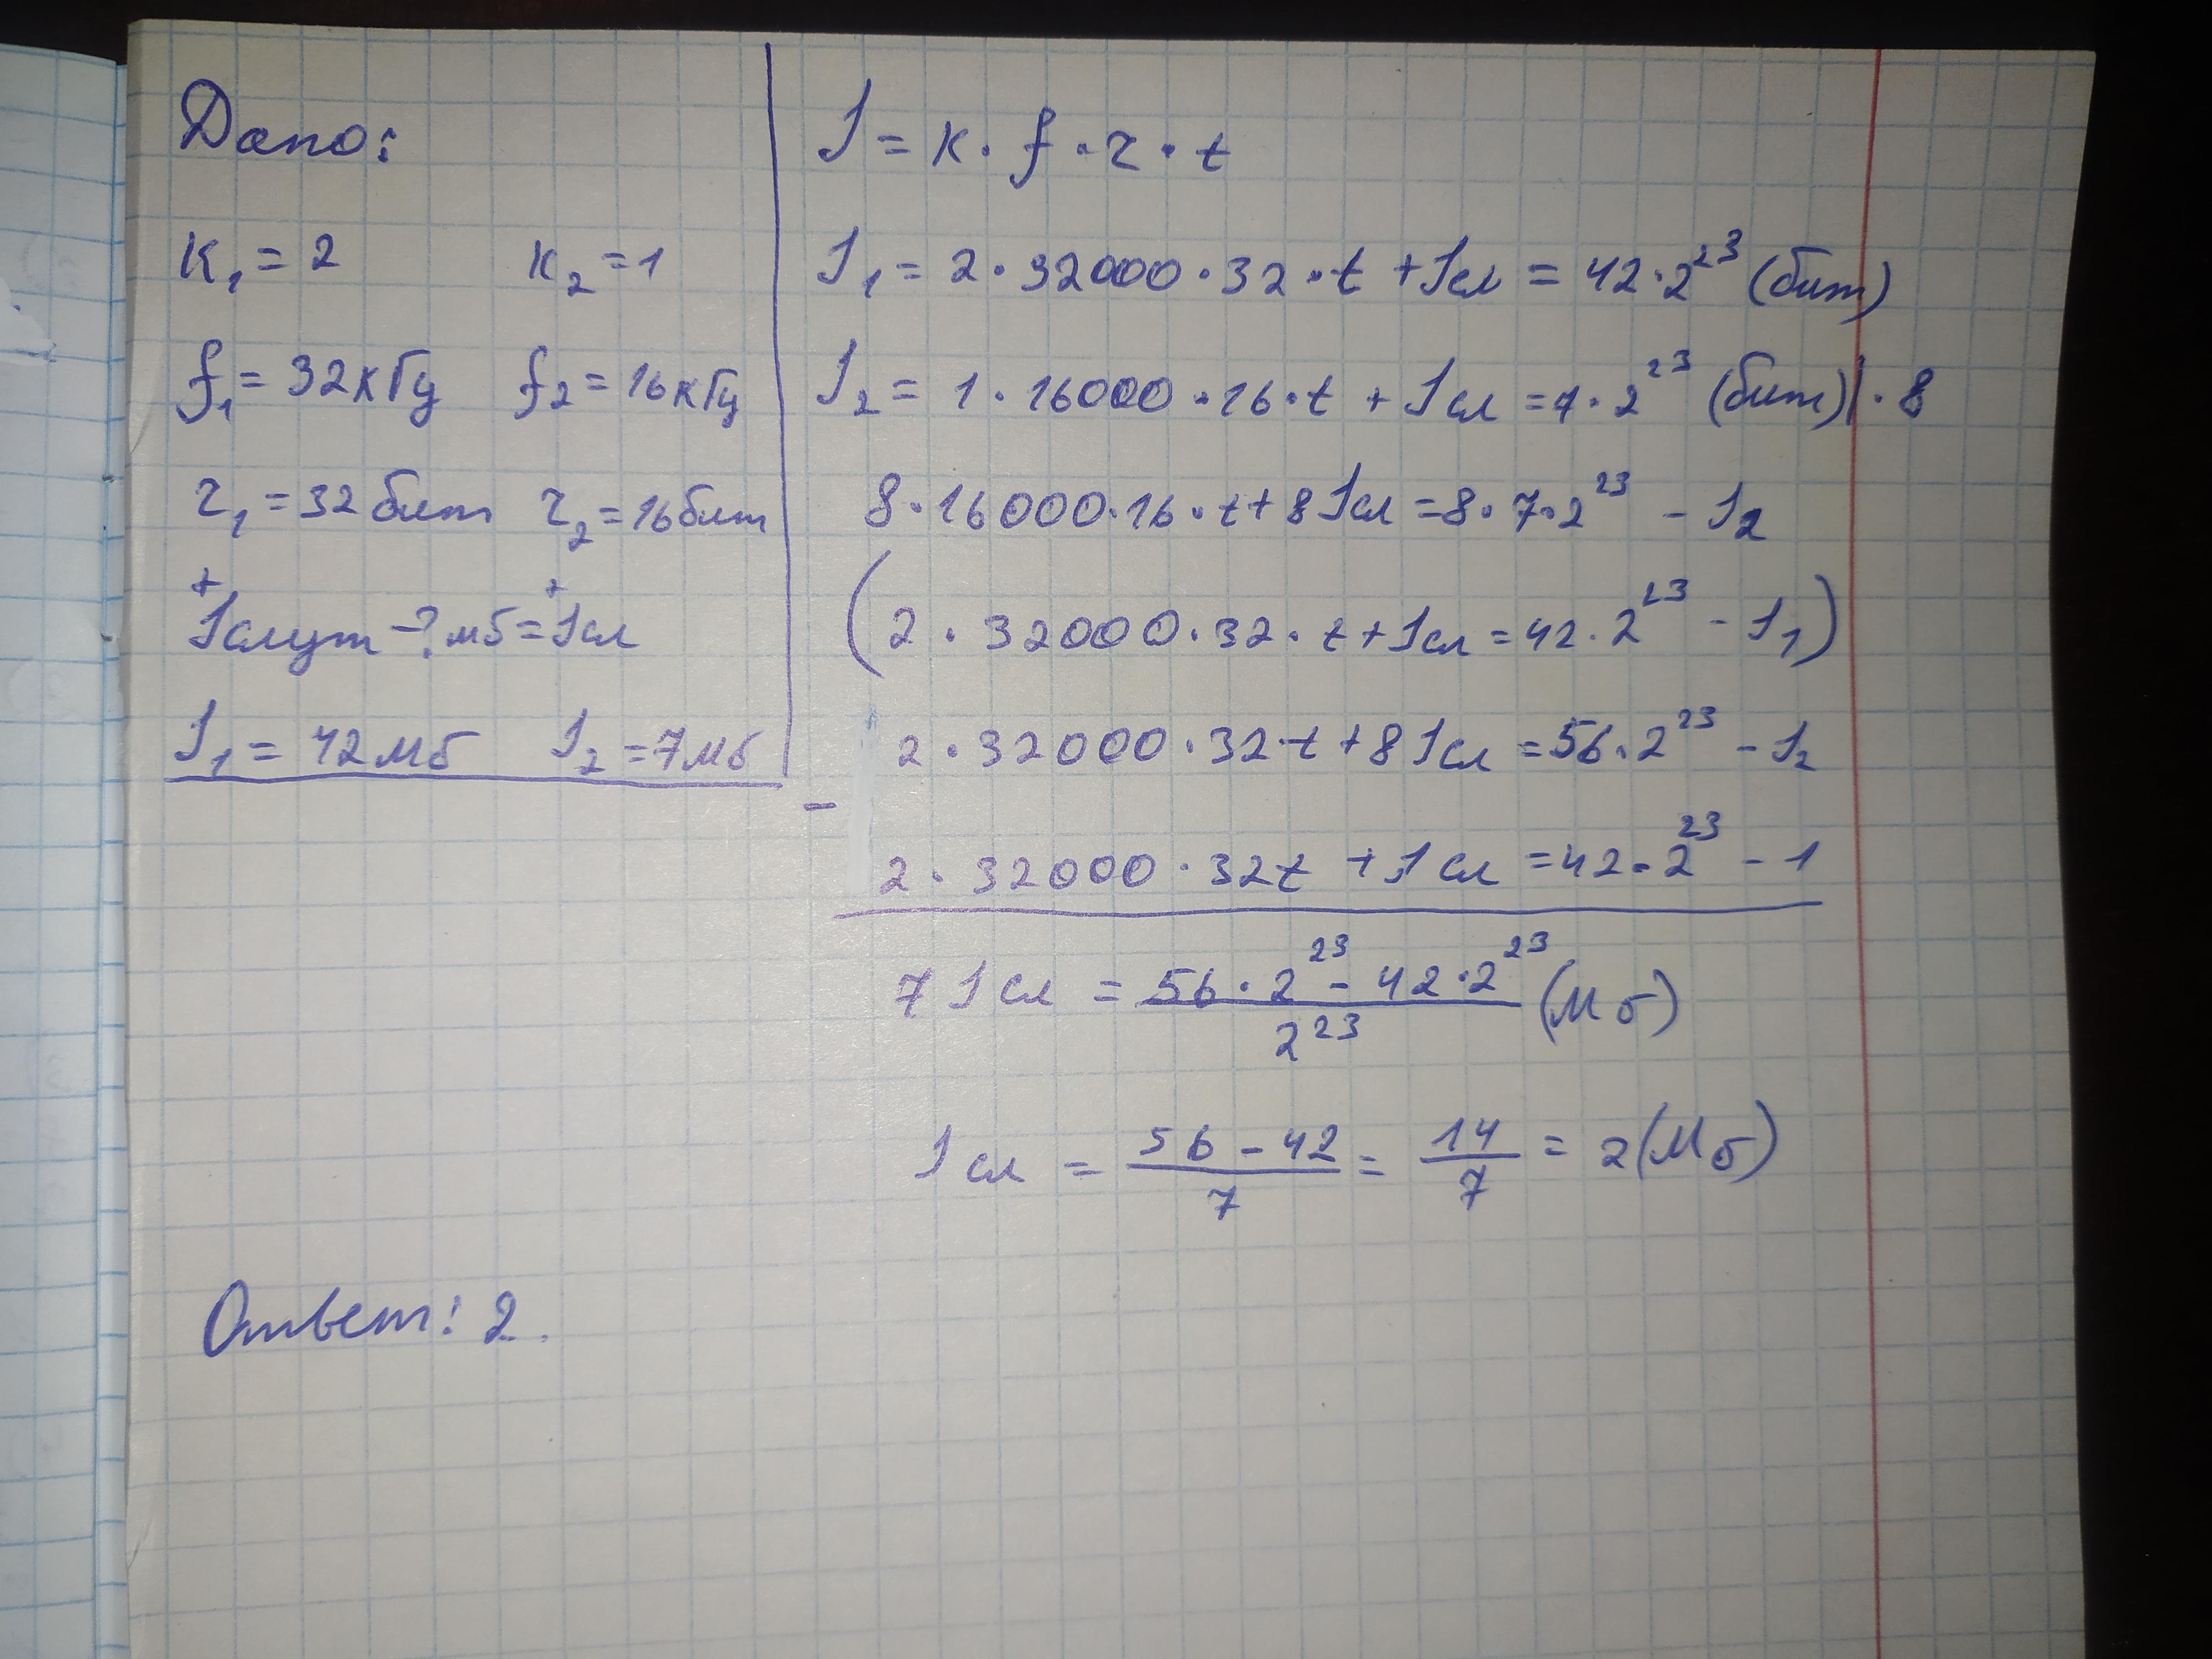 Дано:
K₁ = 2 K₂ = 1
f₁ = 32 кГц f₂ = 16 кГц
r₁ = 32 бит r₂ = 16 бит
+ +
Iслут - ? мб = Iсл
I₁ = 42 мб I₂ = 7 мб
I = K · f · r · t
I₁ = 2 · 32000 · 32 · t + Iсл = 42 · 2²³ (бит)
I₂ = 1 · 16000 · 16 · t + Iсл = 7 · 2²³ (бит) | · 8
8 · 16000 · 16 · t + 8 Iсл = 8 · 7 · 2²³ - I₂
(2 · 32000 · 32 · t + Iсл = 42 · 2²³ - I₁)
2 · 32000 · 32 t + 8 Iсл = 56 · 2²³ - I₂
-
2 · 32000 · 32 t + Iсл = 42 · 2²³ - 1
7 Iсл = (56 · 2²³ - 42 · 2²³) / 2²³ (Мб)
Iсл = (56 - 42) / 7 = 14 / 7 = 2 (Мб)
Ответ: 2.